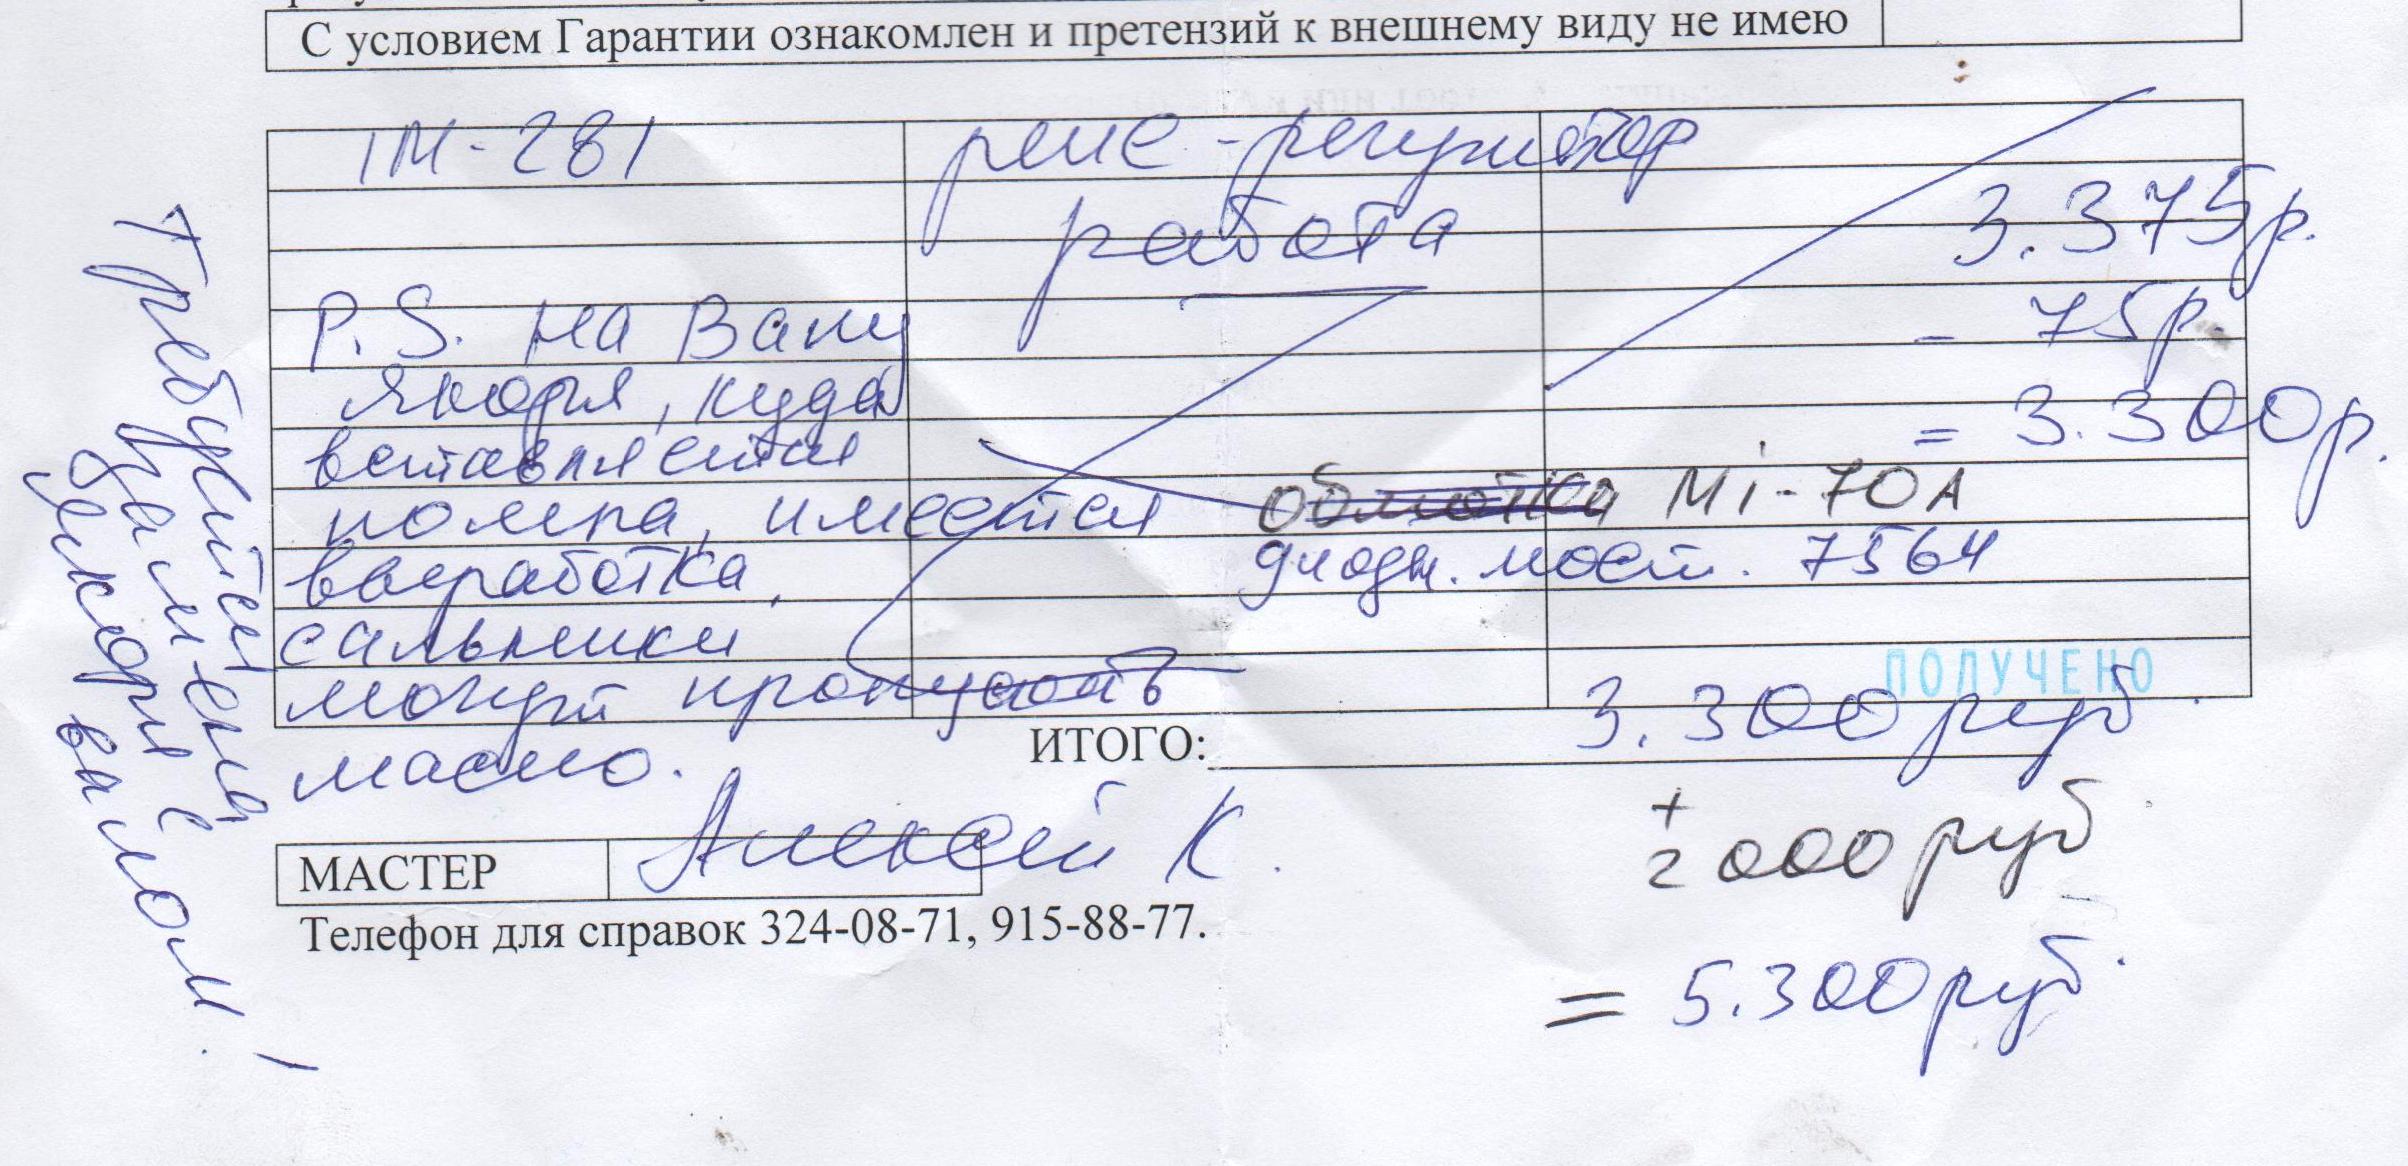 С условием Гарантии ознакомлен и претензий к внешнему виду не имею
IM-281 реле-регулятор
работа 3.375р.
- 75р.
= 3.300р.
P.S. На валу
якоря, куда
вставляется
помпа, имеется
выработка,
сальники
могут пропускать
масло.
обмотка Mi-70A
диодн. мост. 7564
ПОЛУЧЕНО
ИТОГО: 3.300 руб.
+
2000 руб
= 5.300 руб.
МАСТЕР Алексей К.
Телефон для справок 324-08-71, 915-88-77.
Требуется
замена
якоря с
валом!